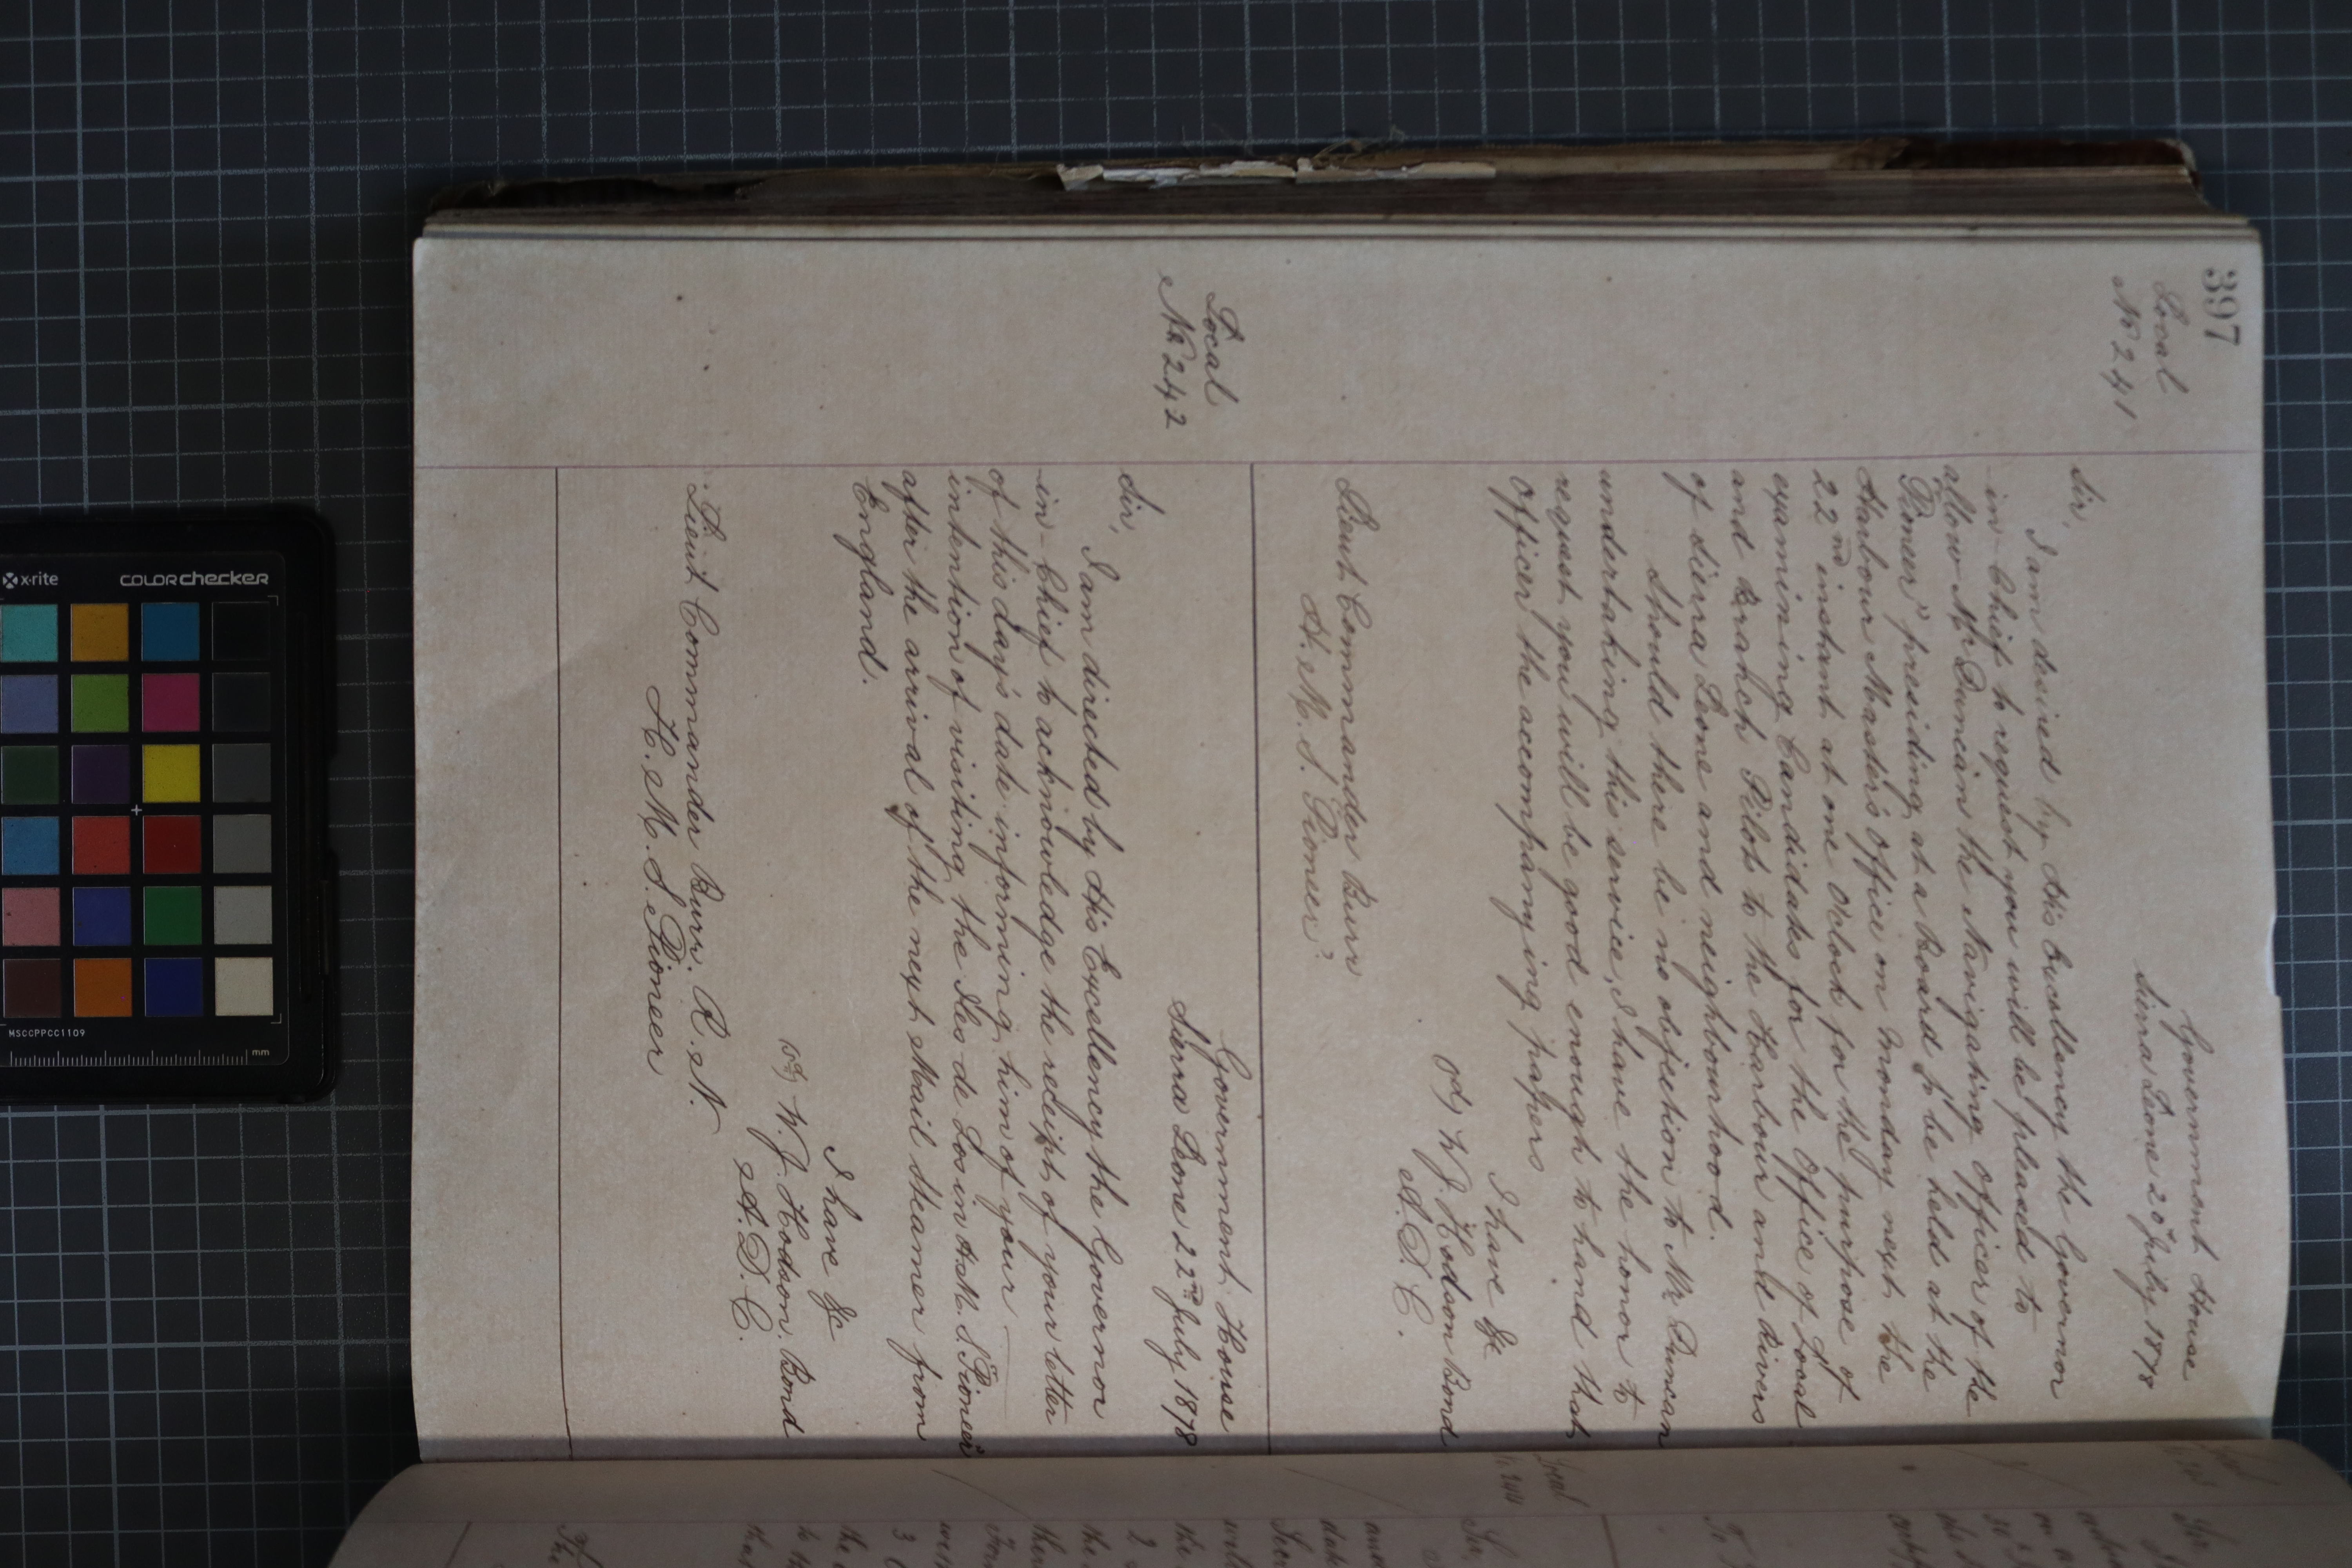 397
Local
No 241
Government House
Sierra Leone 20 July 1878
Sir,
I am desired by His Excellency the Governor
in Chief to request you will be pleased to
allow Mr Duncan the Navigating Officer of the
"Pioneer" presiding at a Board to be held at the
Harbour Master's Office on Monday next the
22nd instant at one O'clock for the purpose of
examining Candidates for the Office of Local
and Branch Pilots to the Harbour and Rivers
of Sierra Leone and neighbourhood.
Should there be no objection to Mr Duncan
undertaking this service, I have the honor to
request you will be good enough to hand that
Officer the accompanying papers
I have &c
W J. Hodson Bond
A. D. C.
Lieut Commander Burr
H. M. S. "Pioneer"
Local
No 242
Government House
Sierra Leone 22nd July 1878
Sir,
I am directed by His Excellency the Governor
in-Chief to acknowledge the receipt of your letter
of this day's date informing him of your
intention of visiting the Iles de Los in H.M.S "Pioneer"
after the arrival of the next Mail Steamer from
England.
I have &c
W. J. Hodson Bond
A. D. C.
Lieut Commander Burr. R. N.
H. M. S. Pioneer
x-rite
colorchecker
MSCCPPCC1109
mm